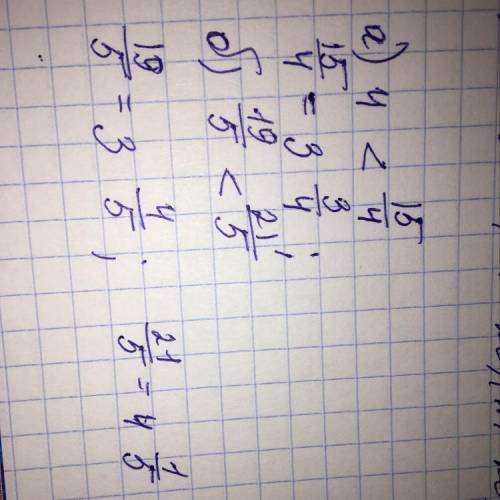 а) 4 < 15/4
15/4 = 3 3/4 ;
б) 19/5 < 21/5 ;
19/5 = 3 4/5 ; 21/5 = 4 1/5